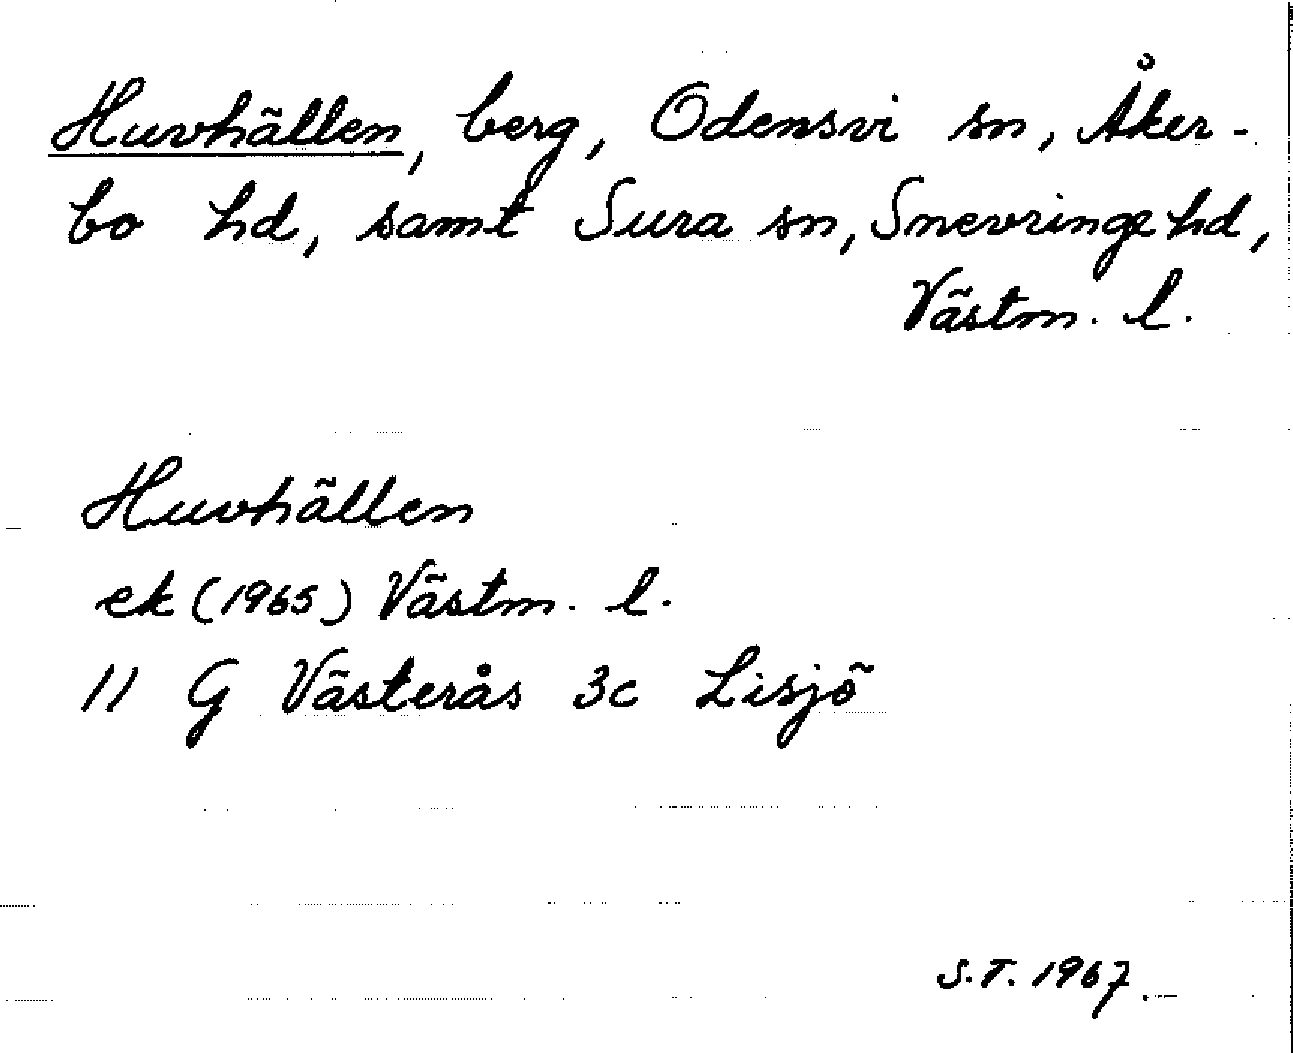 Huvhällen, berg, Odensvi sn, Åker-
bo hd, samt Sura sn, Snevringe hd,
Västm. l.
Huvhällen
ek (1965) Västm. l.
11 G Västerås 3c Lisjö
S.T. 1967.